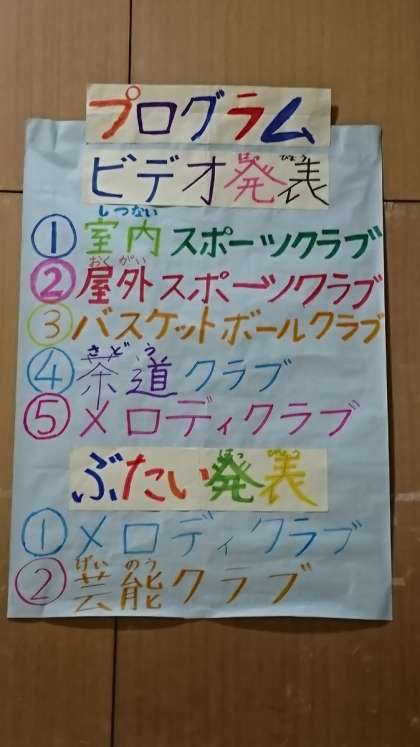 プログラム
ビデオ発表
はっ ぴょう
しつない
①室内スポーツクラブ
おくがい
②屋外スポーツクラブ
③バスケットボールクラブ
さどう
④茶道クラブ
⑤メロディクラブ
はっ ぴょう
ぶたい発表
①メロディクラブ
げい のう
②芸能クラブ